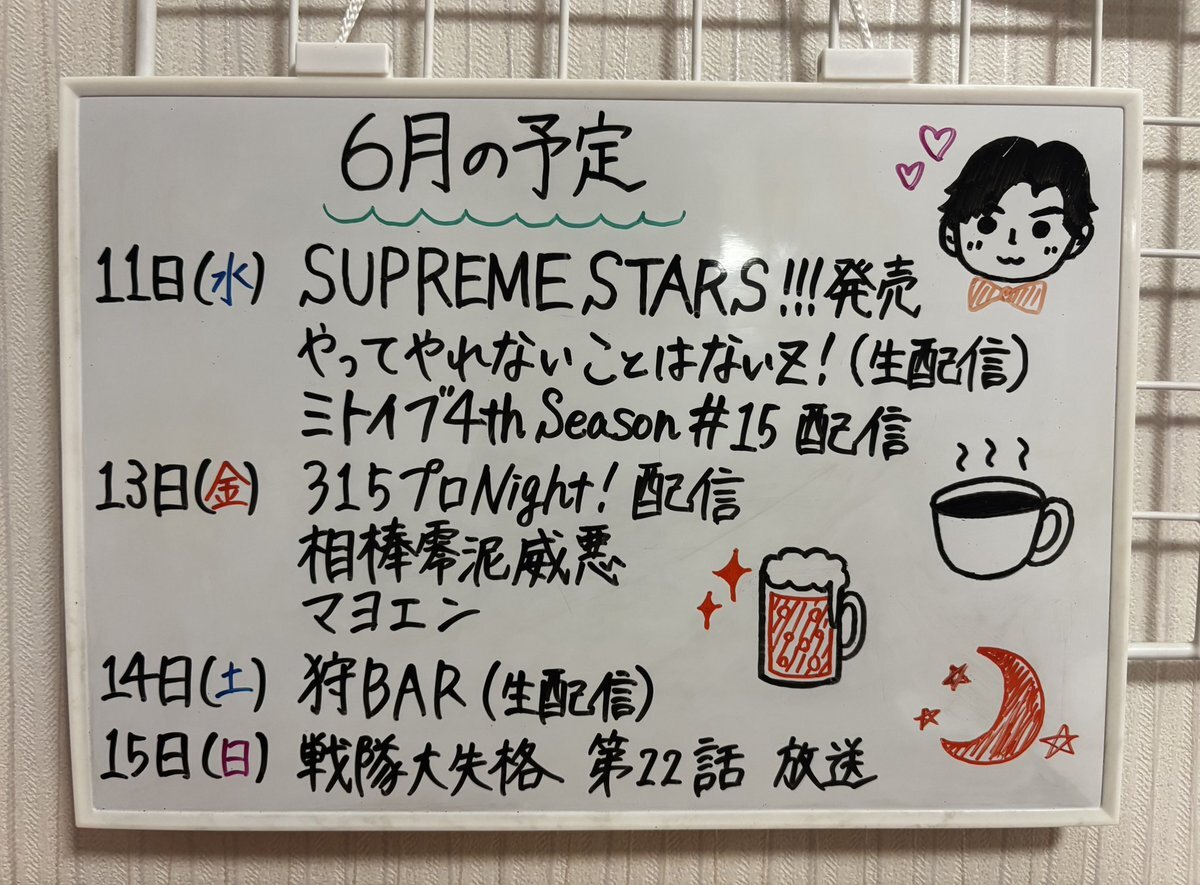 6月の予定
11日(水) SUPREME STARS!!!発売
やってやれないことはないZ!(生配信)
ミトイブ4th Season #15 配信
13日(金) 315プロNight! 配信
相棒零泥威悪
マヨエン
14日(土) 狩BAR(生配信)
15日(日) 戦隊大失格 第22話 放送